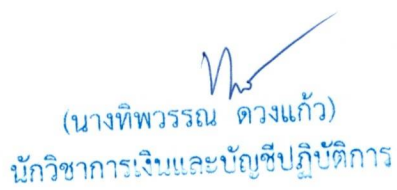 (นางทิพวรรณ ดวงแก้ว)
นักวิชาการเงินและบัญชีปฏิบัติการ